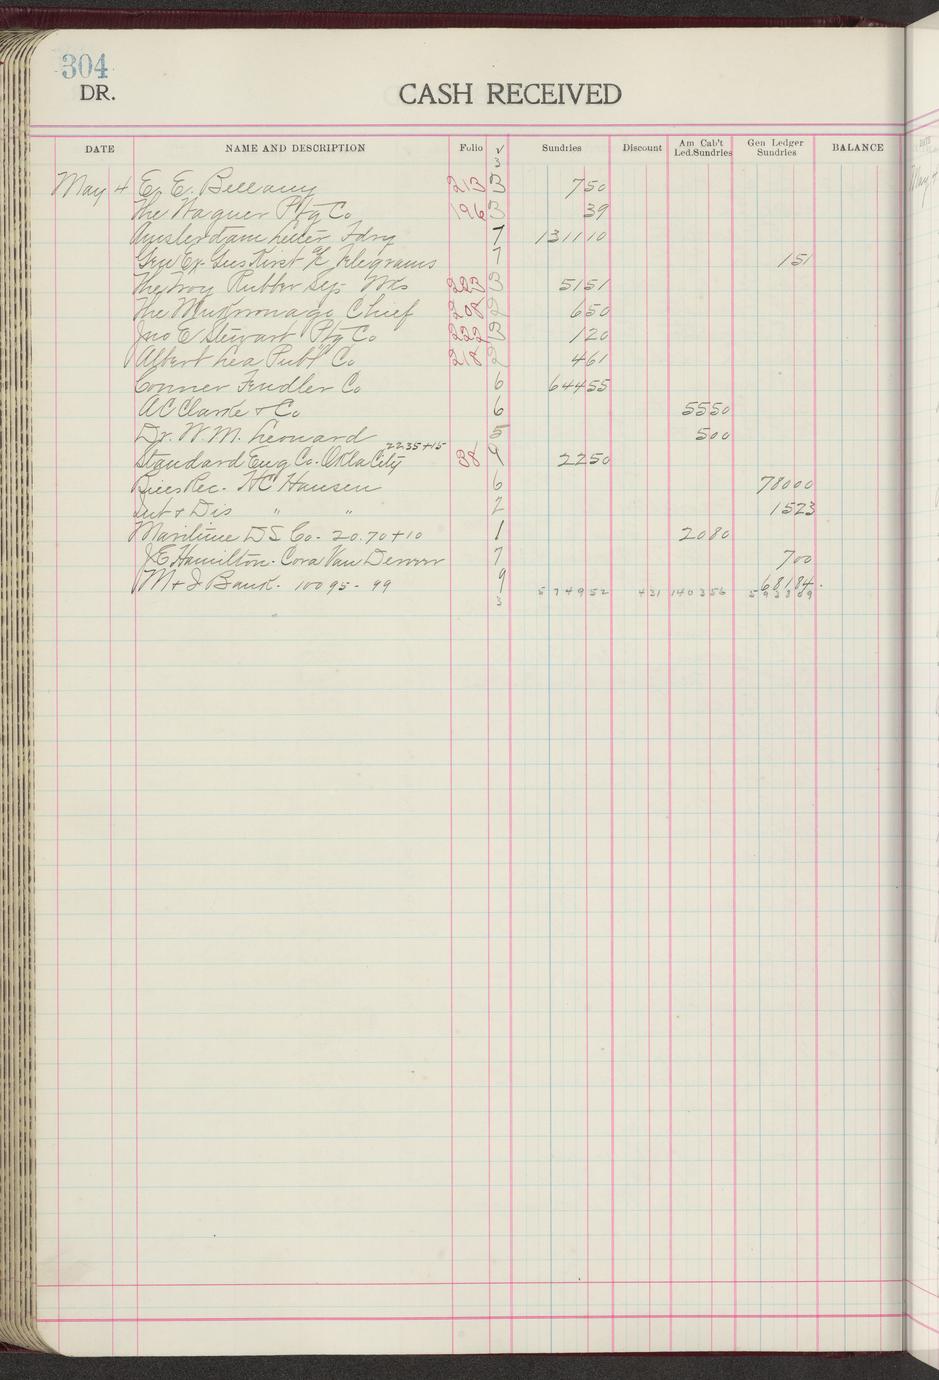 304
DR.
CASH RECEIVED
DATE NAME AND DESCRIPTION Folio √ Sundries Discount Am Cab't Led.Sundries Gen Ledger Sundries BALANCE
3
May 4 E. E. Bellamy 213 3 750
The Wagner Ptg Co 196 3 39
Amsterdam Elec Fdry 7 131110
Gen Ex. Gus Kirst Telegrams 7 151
The Troy Rubber Wks 223 3 5151
The Mukwonago Chief 208 2 650
Jno E Stewart Ptg Co 222 3 120
Albert Lea Publ Co 218 2 461
Conner Fendler Co 6 64455
A C Clarke & Co 6 5550
Dr. W. M. Leonard 5 500
Standard Eng Co. Okla City 2235+15 38 4 2250
Bills Rec. H C Hansen 6 78000
Int & Dis " " 2 1523
Maritime D S Co - 20.70+10 1 2080
J E Hamilton. Cora Van Denver 7 700
M & I Bank. 10095 - 99 9 68184
3 574952 431 140356 593809